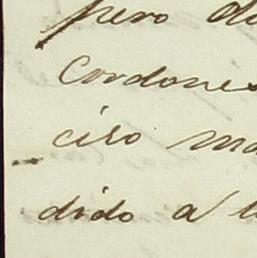 pero di
Cordones
ciso ma
dido a l